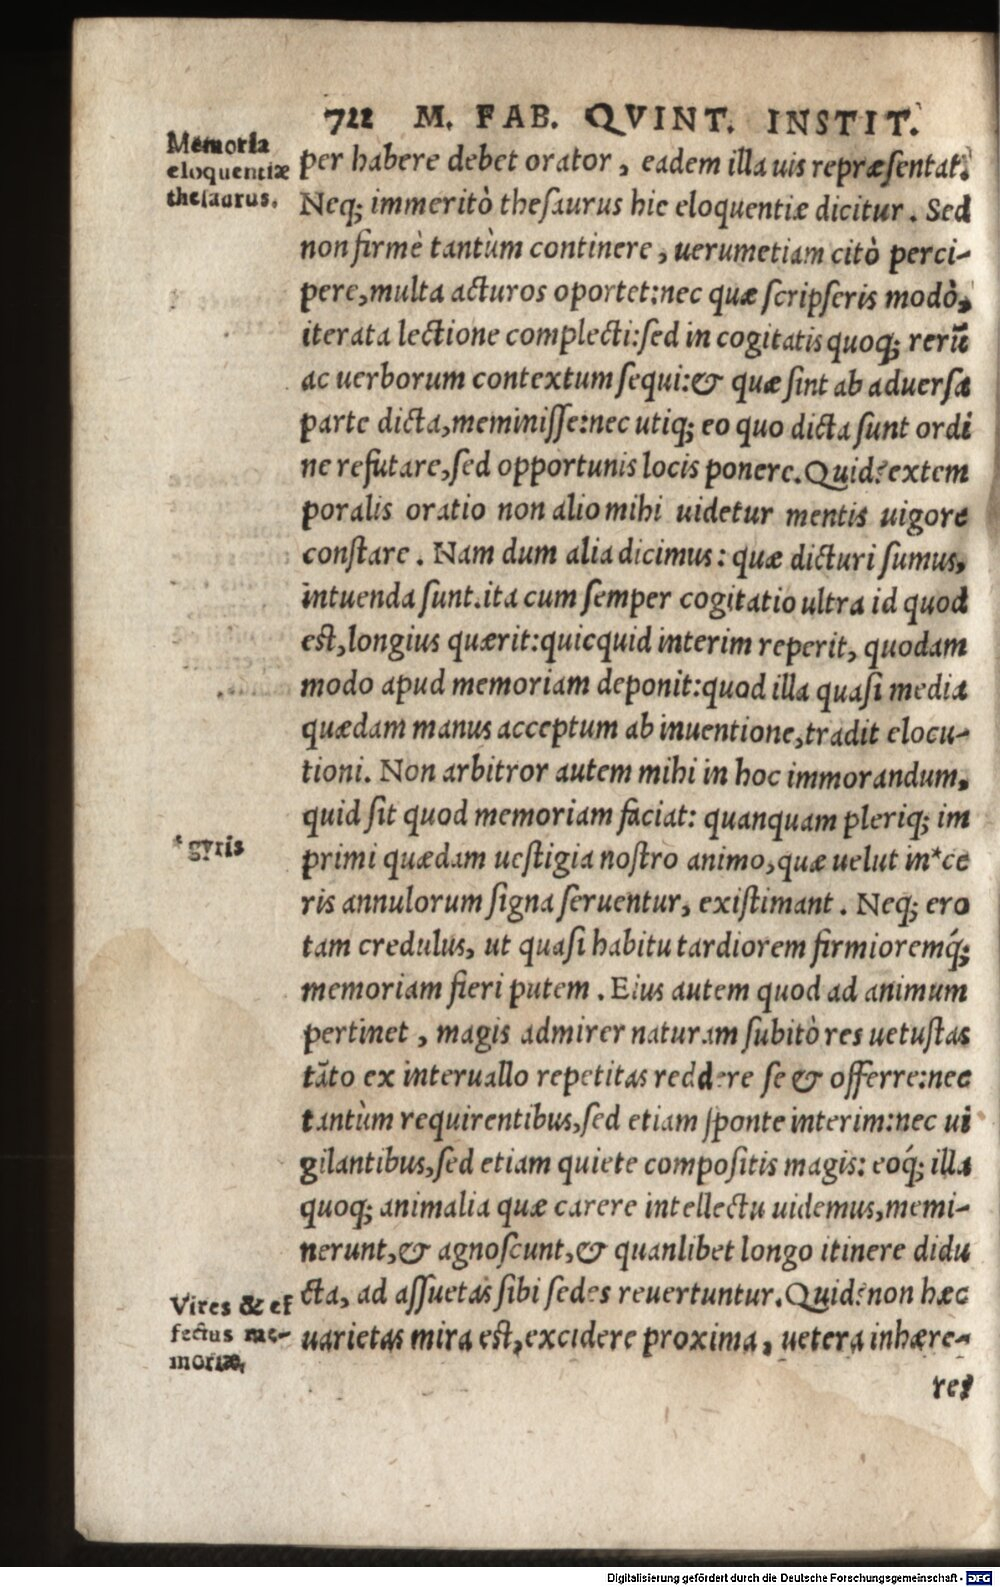 722 M. FAB. QVINT. INSTIT.
Memoria
eloquentiæ
thesaurus.
per habere debet orator, eadem illa uis repræsentat.
Neq; immeritò thesaurus hic eloquentiæ dicitur. Sed
non firmè tantùm continere, uerumetiam citò perci-
pere, multa acturos oportet: nec quæ scripseris modò,
iterata lectione complecti: sed in cogitatis quoq; rerū
ac uerborum contextum sequi: & quæ sint ab aduersa
parte dicta, meminisse: nec utiq; eo quo dicta sunt ordi
ne refutare, sed opportunis locis ponere. Quid? extem
poralis oratio non alio mihi uidetur mentis uigore
constare. Nam dum alia dicimus: quæ dicturi sumus,
intuenda sunt. ita cum semper cogitatio ultra id quod
est, longius quærit: quicquid interim reperit, quodam
modo apud memoriam deponit: quod illa quasi media
quædam manus acceptum ab inuentione, tradit elocu-
tioni. Non arbitror autem mihi in hoc immorandum,
quid sit quod memoriam faciat: quanquam pleriq; im
*gyris
primi quædam uestigia nostro animo, quæ uelut in *ce
ris annulorum signa seruentur, existimant. Neq; ero
tam credulus, ut quasi habitu tardiorem firmioremq́;
memoriam fieri putem. Eius autem quod ad animum
pertinet, magis admirer naturam subitò res uetustas
tāto ex interuallo repetitas reddere se & offerre: nec
tantùm requirentibus, sed etiam sponte interim: nec ui
gilantibus, sed etiam quiete compositis magis: eoq́; illa
quoq; animalia quæ carere intellectu uidemus, memi-
nerunt, & agnoscunt, & quanlibet longo itinere didu
cta, ad assuetas sibi sedes reuertuntur. Quid? non hæc
uarietas mira est, excidere proxima, uetera inhære-
Vires & ef
fectus me-
moriæ.
re?
Digitalisierung gefördert durch die Deutsche Forschungsgemeinschaft - DFG